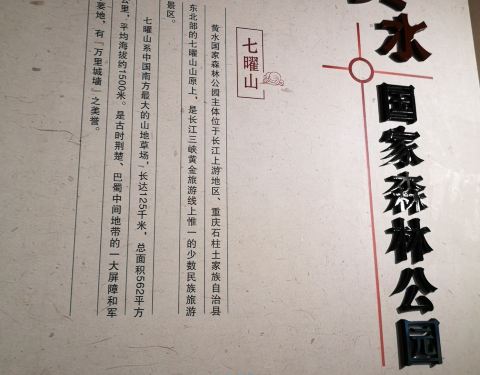 水国家森林公园
七曜山
黄水国家森林公园主体位于长江上游地区、重庆石柱土家族自治县
东北部的七曜山山原上，是长江三峡黄金旅游线上惟一的少数民族旅游
景区。
七曜山系中国南方最大的山地草场，长达125千米，总面积562平方
公里，平均海拔约1500米。是古时荆楚、巴蜀中间地带的一大屏障和军
要地，有『万里城墙』之美誉。